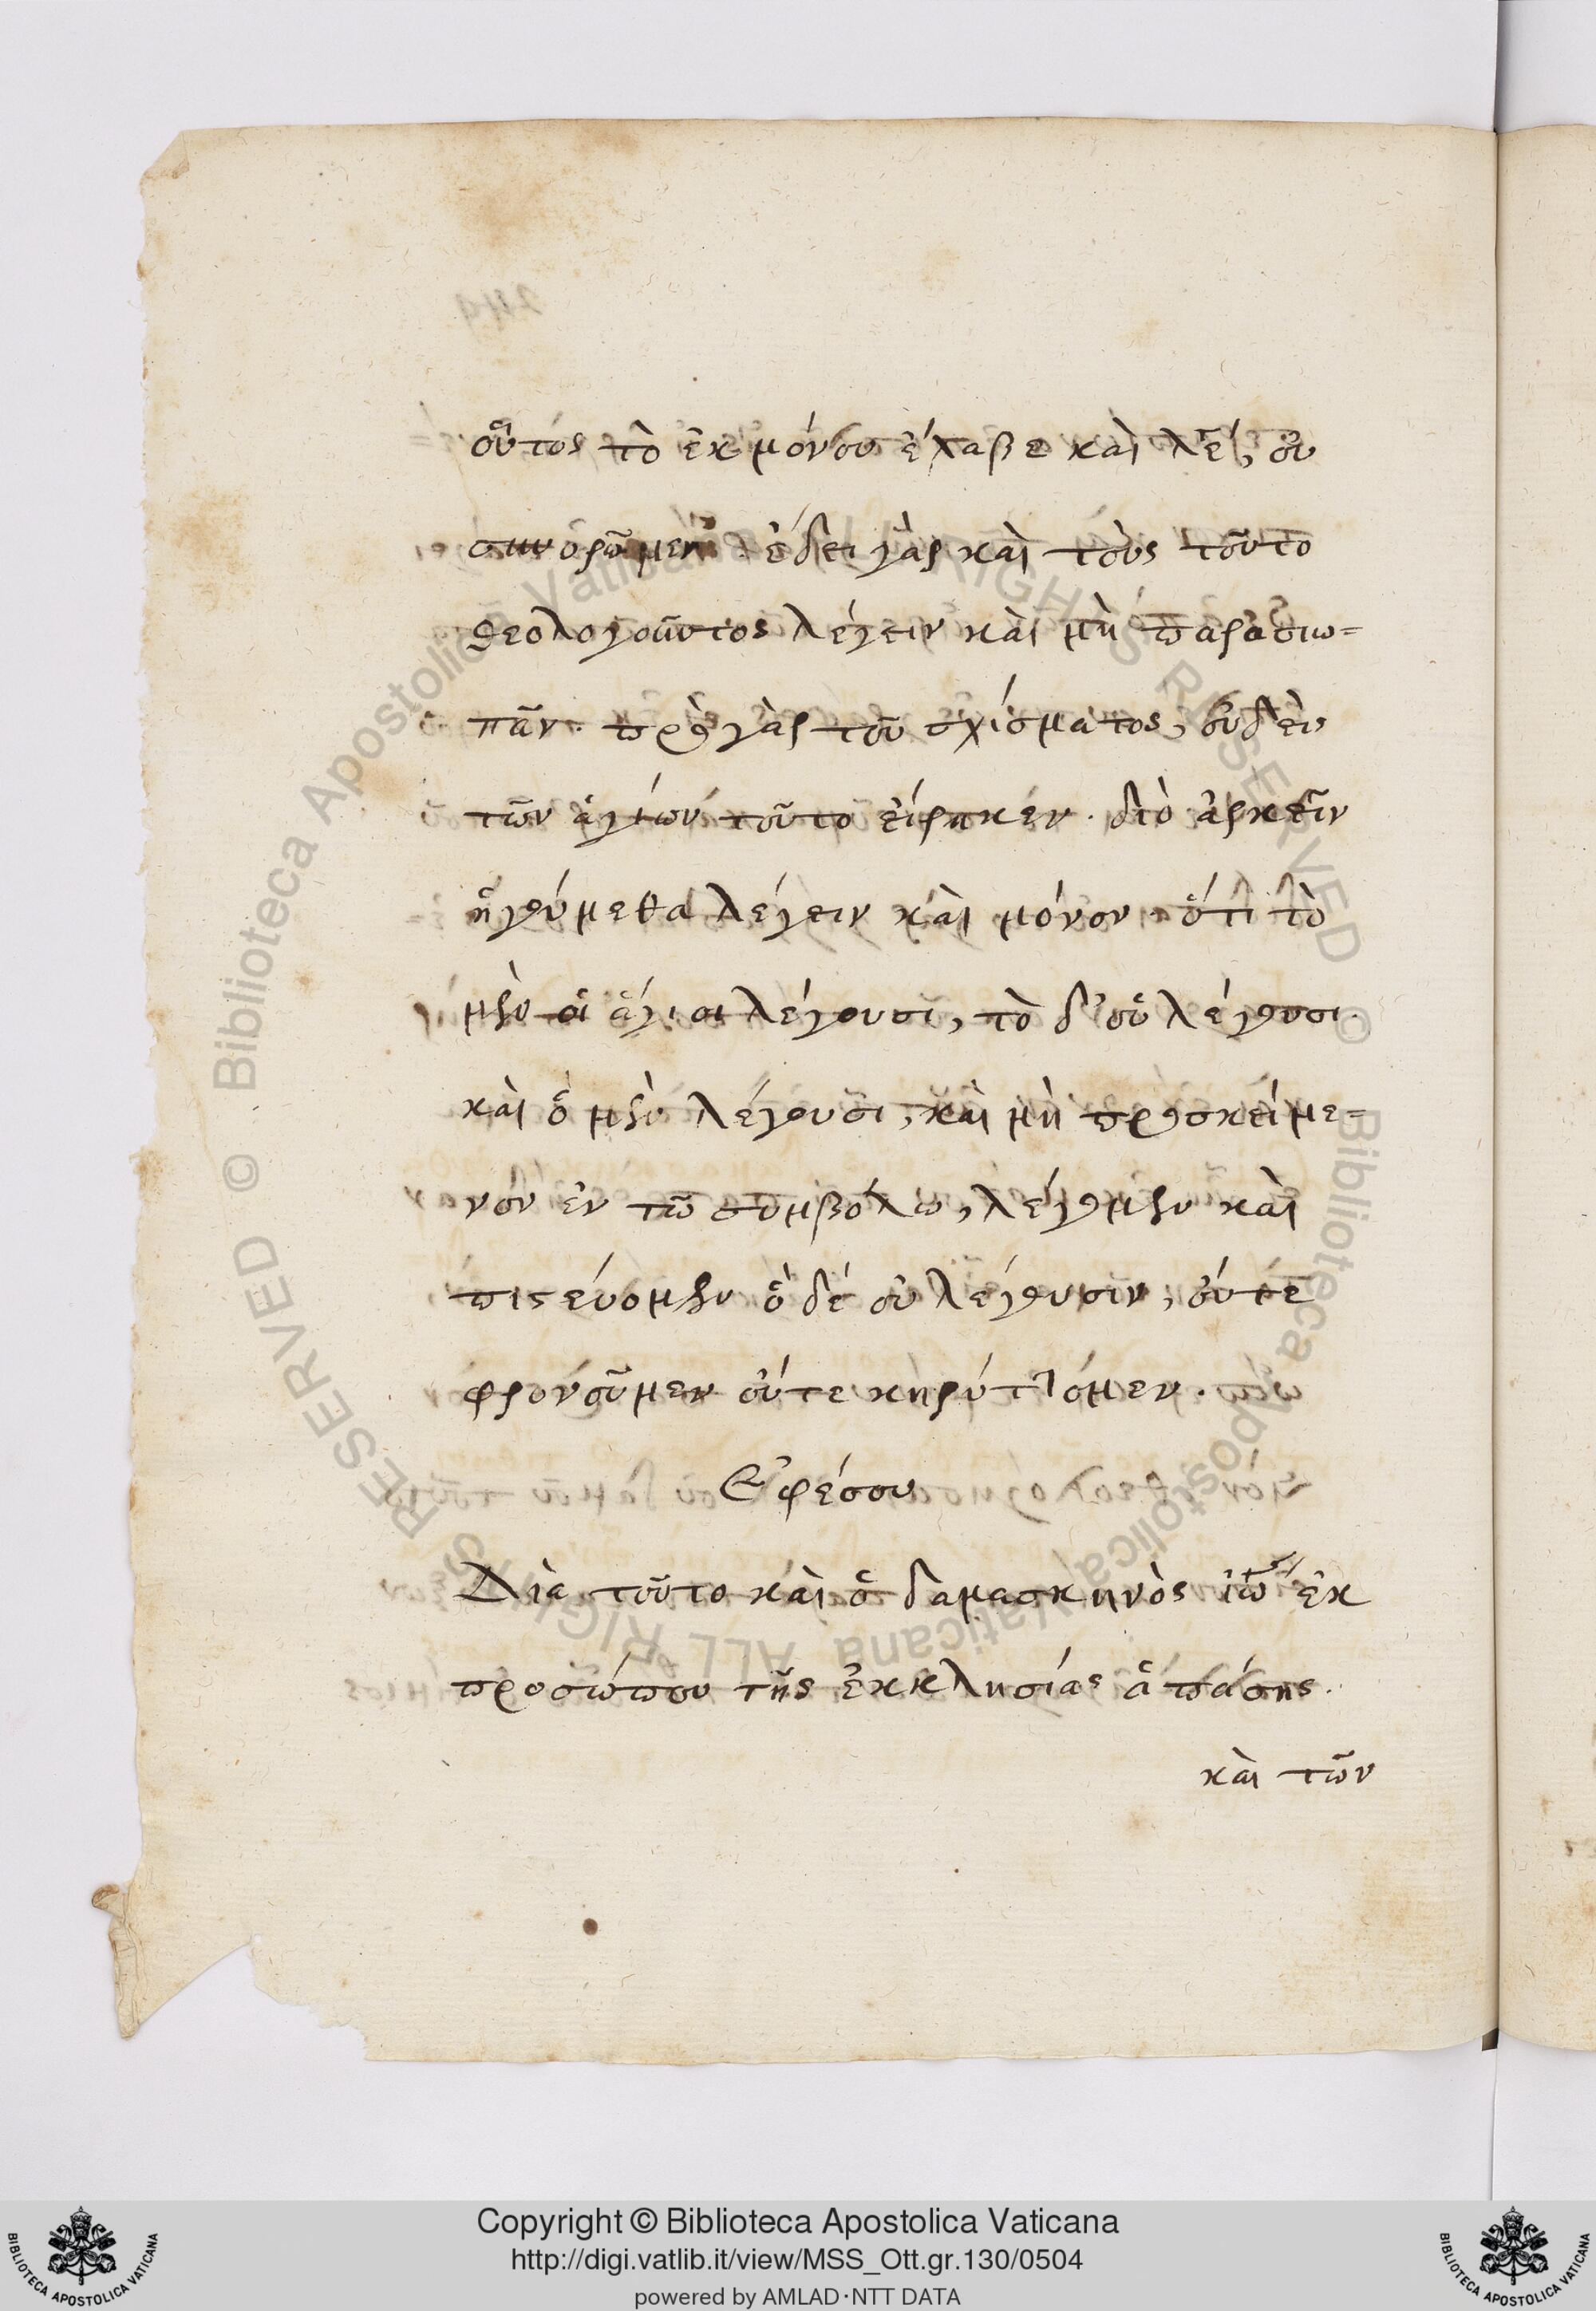 οὗτος τὸ ἐκ μόνου ἔλαβε καὶ λέ, οὐ
συνορῶμεν ἔδει γὰρ καὶ τοὺς τοῦτο
θεολογοῦντος λέγειν καὶ μὴ παρασιω=
πᾶν. πρὸ γὰρ τοῦ σχίσματος, οὐδεὶς
τῶν ἁγίων τοῦτο εἴρηκεν. διὸ ἀρκεῖν
ἡγούμεθα λέγειν καὶ μόνον ὅτι τὸ
μὲν οἱ ἅγιοι λέγουσι, τὸ δ' οὐ λέγουσι.
καὶ ὃ μὲν λέγουσι, καὶ μὴ προσκείμε=
νον ἐν τῶ συμβόλω, λέγομεν καὶ
πιστεύομεν ὃ δέ οὐ λέγουσιν, οὔτε
φρονοῦμεν οὔτε κηρύττομεν.
Ἐφέσου
Διὰ τοῦτο καὶ ὁ δαμασκηνὸς ἰω ἐκ
προσώπου τῆς ἐκκλησίας ἁπάσης.
καὶ τῶν
Biblioteca Apostolica Vaticana ALL RIGHTS RESERVED ©
Biblioteca Apostolica Vaticana ALL RIGHTS RESERVED ©
Copyright © Biblioteca Apostolica Vaticana
http://digi.vatlib.it/view/MSS_Ott.gr.130/0504
powered by AMLAD·NTT DATA
BIBLIOTECA APOSTOLICA VATICANA
BIBLIOTECA APOSTOLICA VATICANA